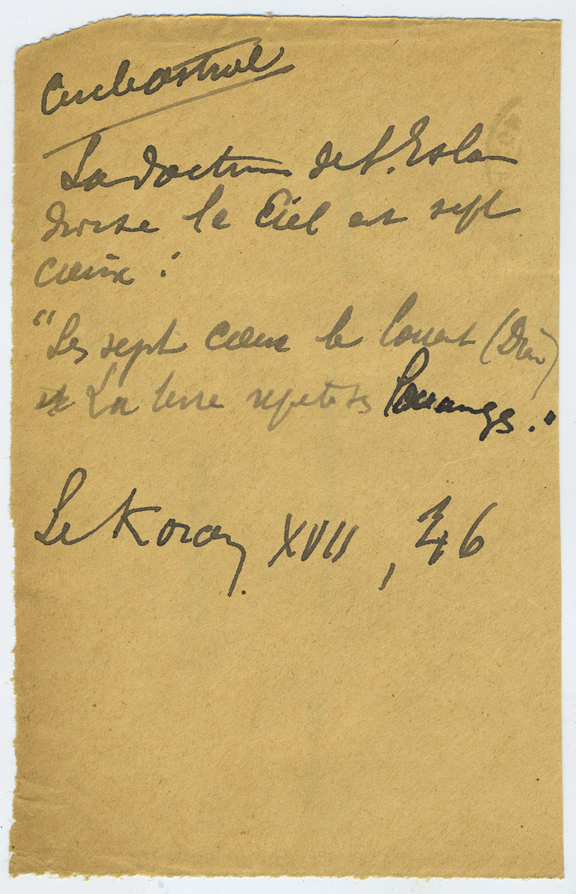 Culte astral
La doctrine de l'Islam
divise le Ciel en sept
cieux :
"Les sept cieux le louent (Dieu)
et La terre répète ses louanges."
Le Koran XVII, 46